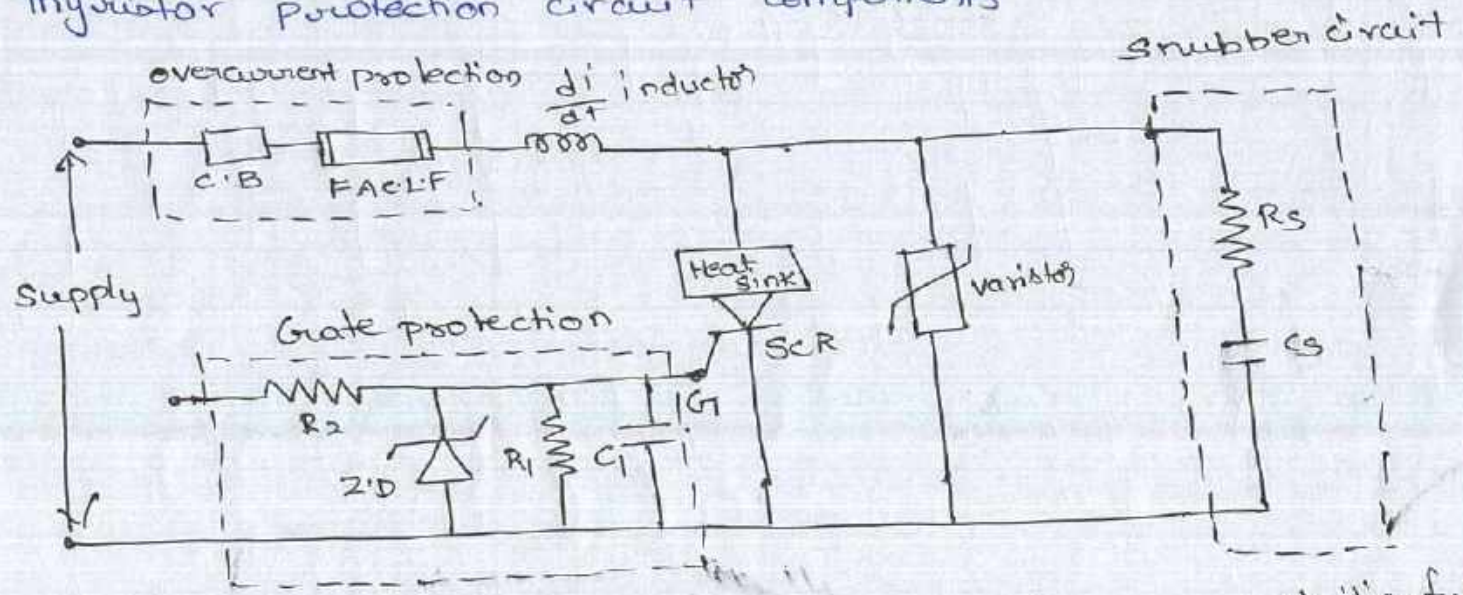 Thyristor protection circuit components
Snubber circuit
overcurrent protection
di/dt inductor
C.B
F.A.C.L.F
Rs
Heat
sink
varistor
Supply
Gate protection
SCR
Cs
G
R2
R1
C1
Z.D